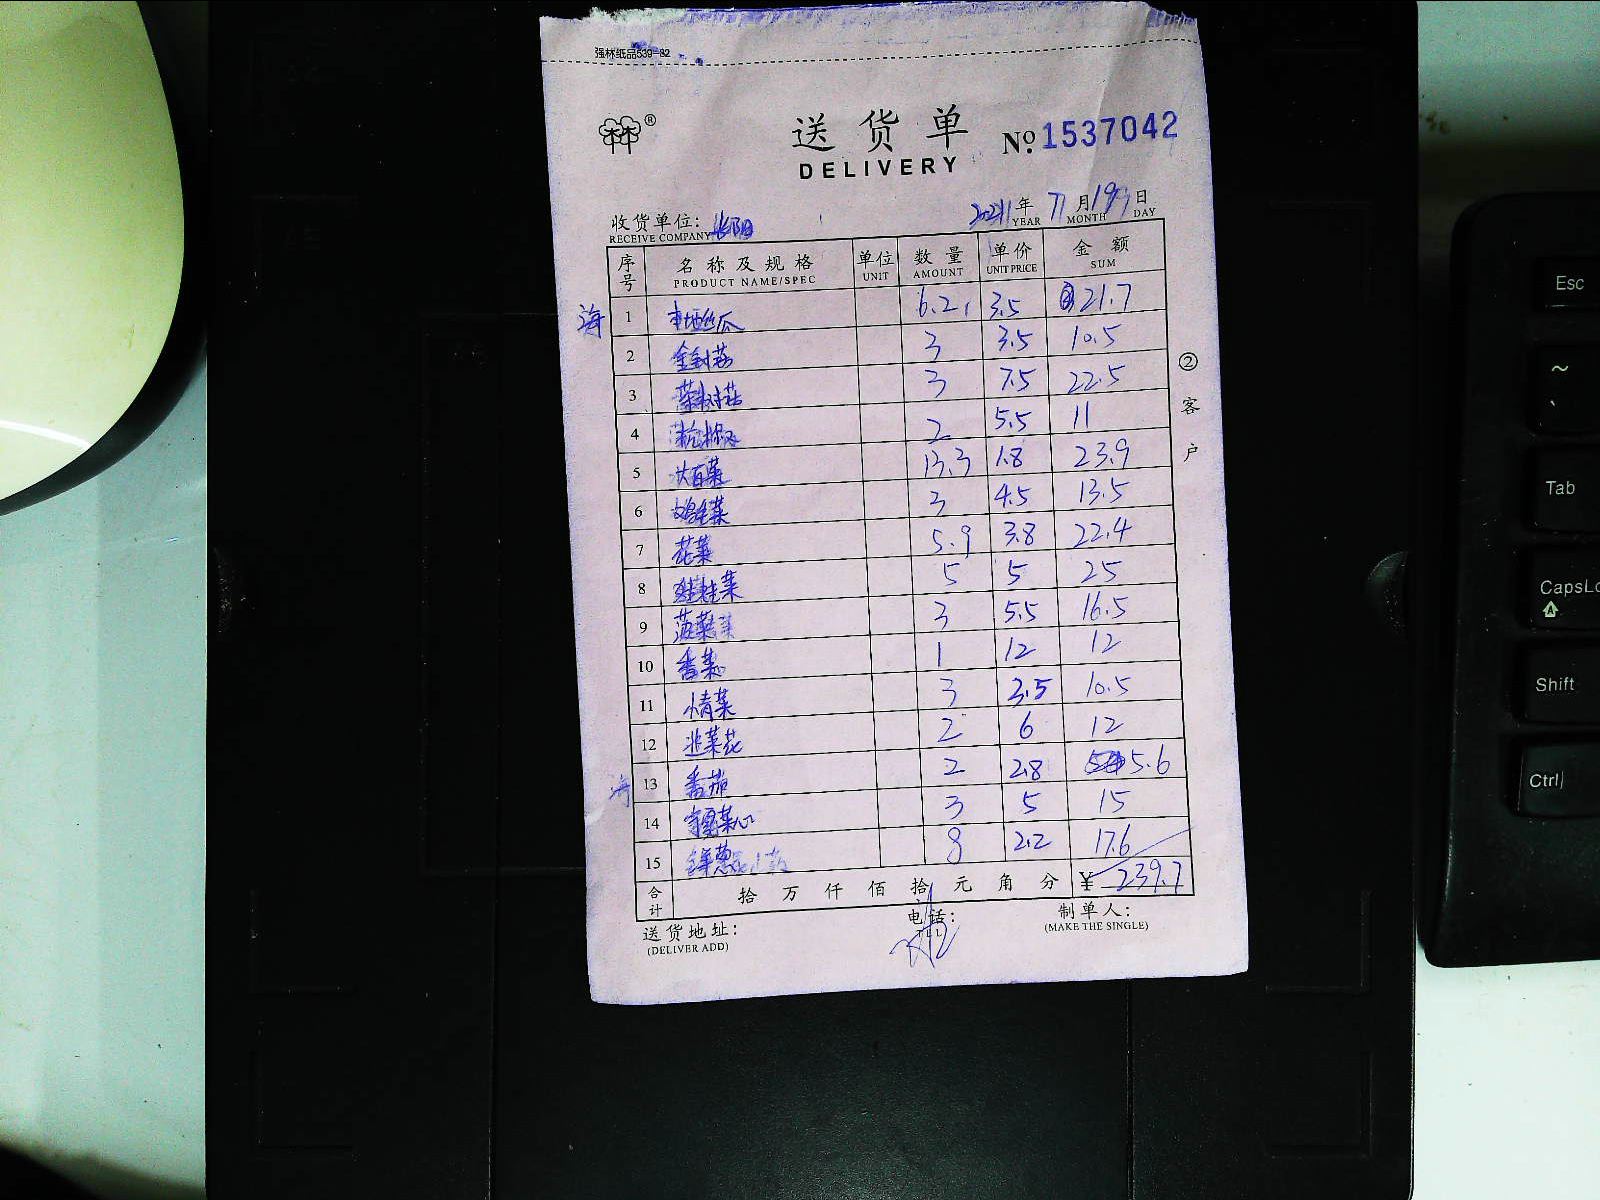 强林纸品539-82
®
送货单
№ 1537042
DELIVERY
2021年 7月19日
YEAR MONTH DAY
收货单位:
RECEIVE COMPANY
序号 名称及规格 单位 数量 单价 金额
PRODUCT NAME/SPEC UNIT AMOUNT UNIT PRICE SUM
海 1 本地丝瓜 6.2 3.5 21.7
2 金针菇 3 3.5 10.5
3 茶树菇 3 7.5 22.5
4 杭椒 2 5.5 11
5 大白菜 13.3 1.8 23.9
6 鸡毛菜 3 4.5 13.5
7 花菜 5.9 3.8 22.4
8 娃娃菜 5 5 25
9 菠菜 3 5.5 16.5
10 香菜 1 12 12
11 青菜 3 3.5 10.5
12 韭菜花 2 6 12
海 13 番茄 2 2.8 5.6
14 菜心 3 5 15
15 洋葱 8 2.2 17.6
合计 拾万仟佰拾元角分 ¥ 239.7
②客户
送货地址: 电话: 制单人:
(DELIVER ADD) TEL (MAKE THE SINGLE)
Esc
~
Tab
CapsLo
Shift
Ctrl